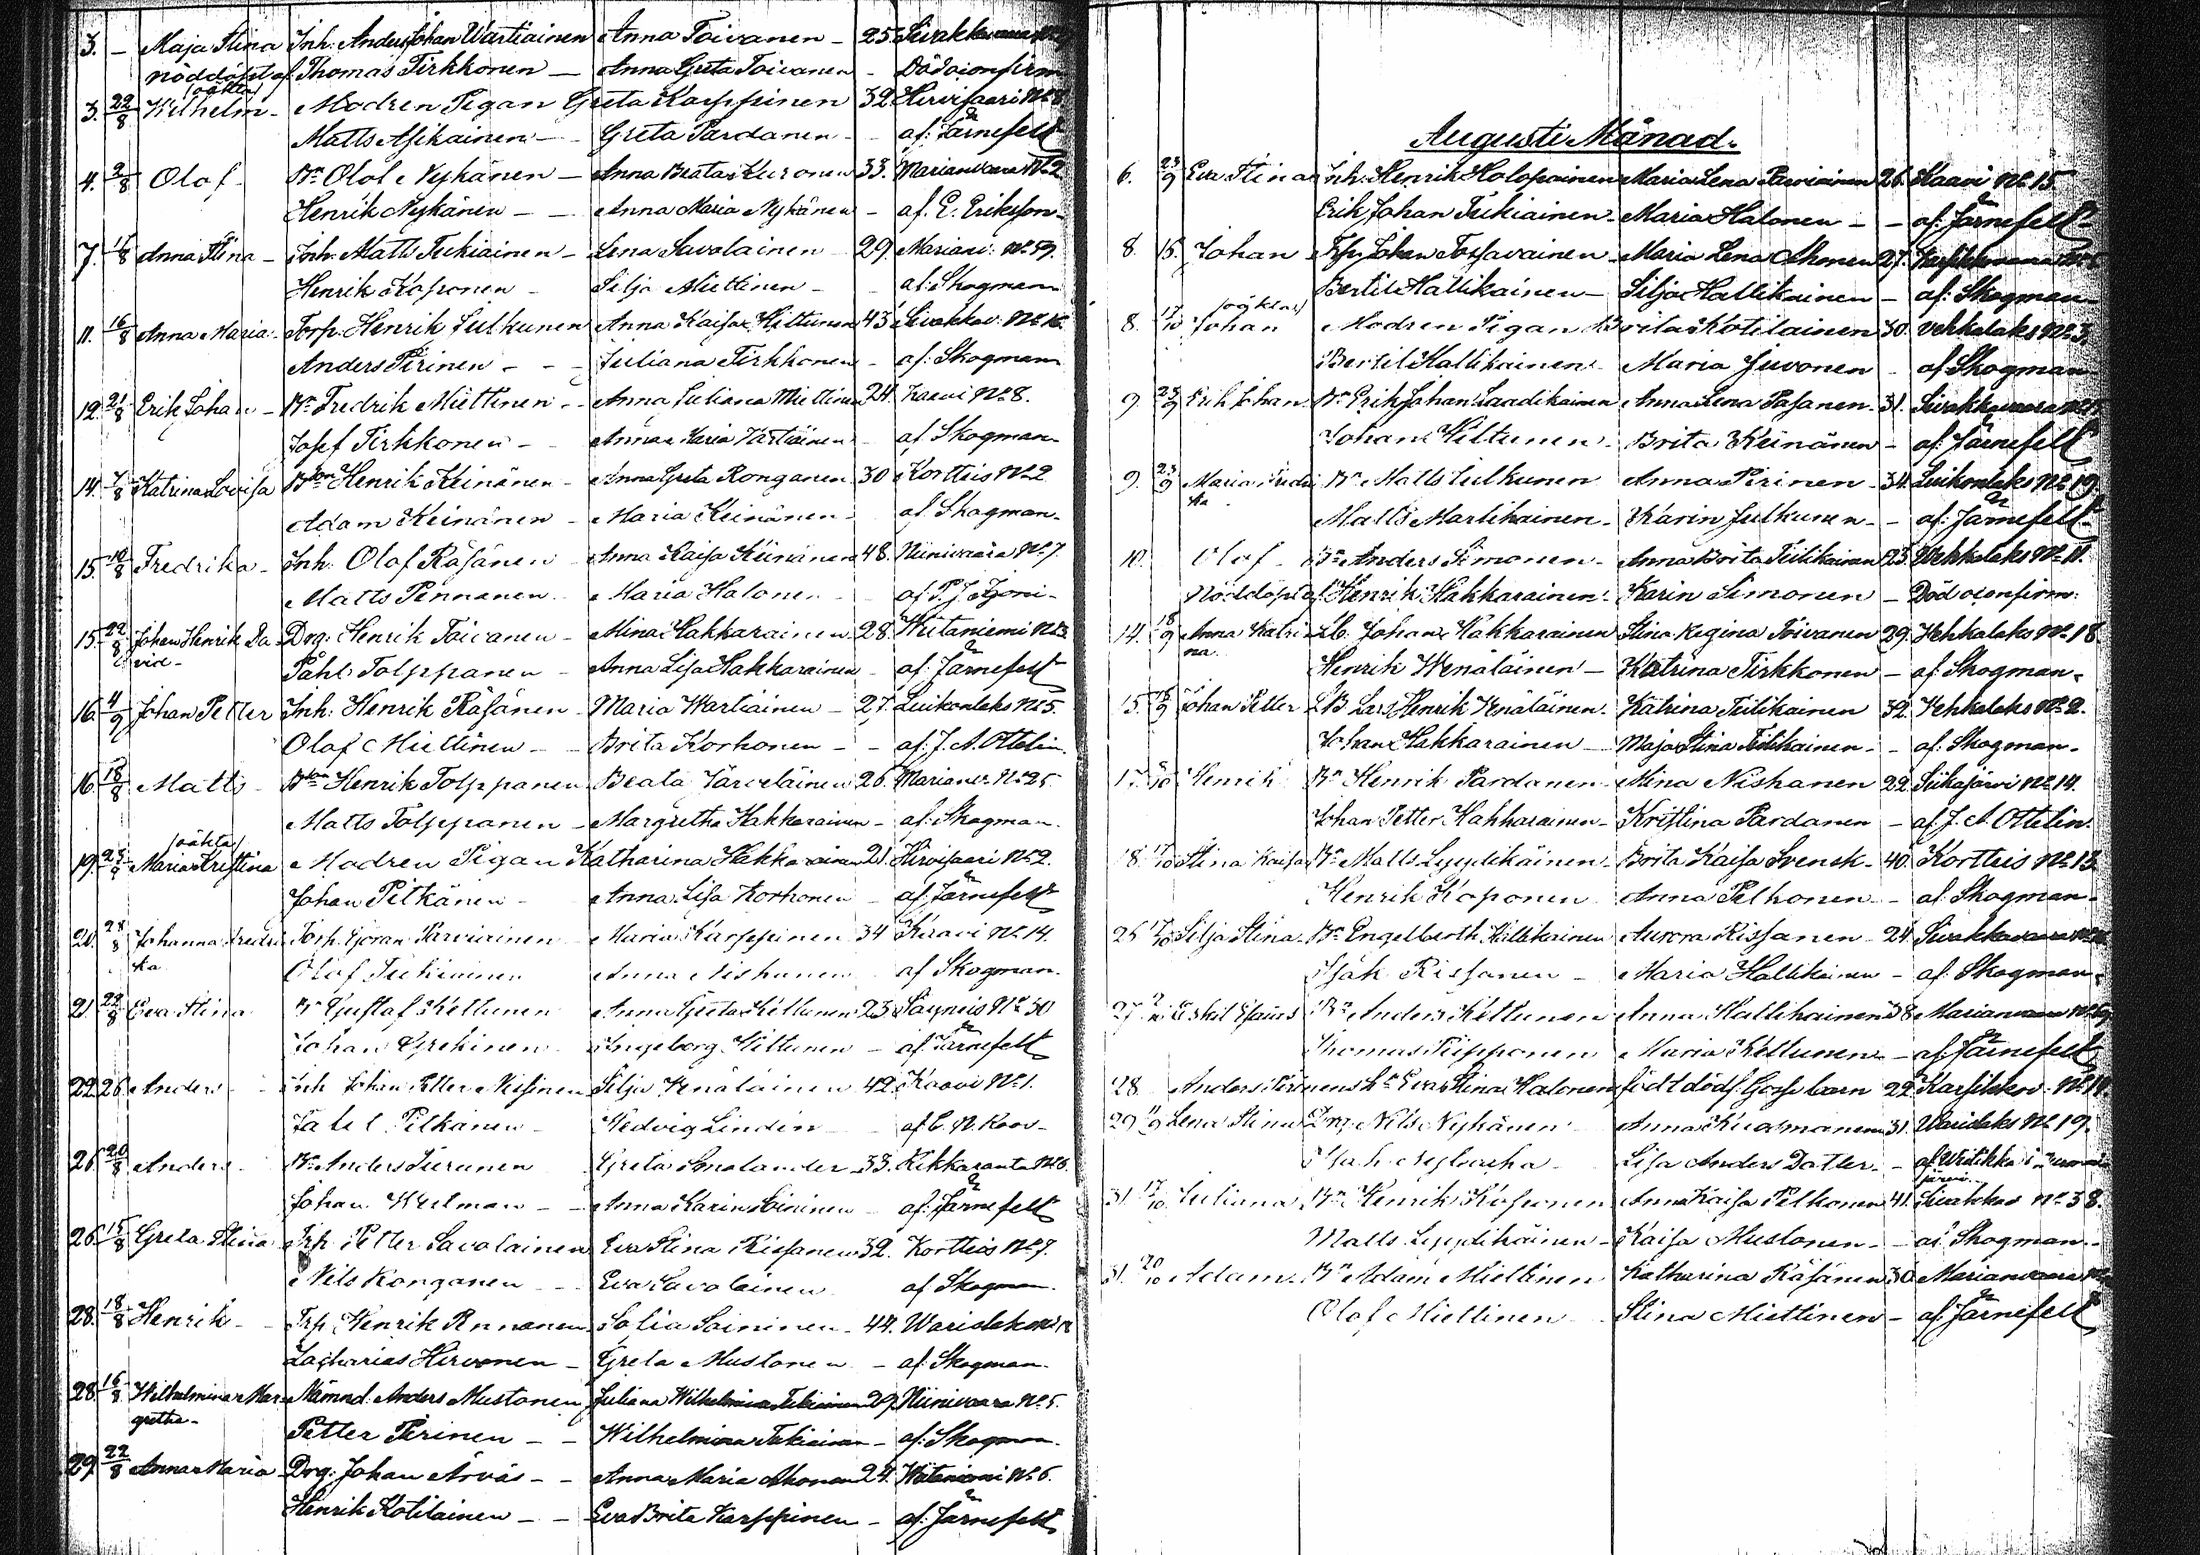 3. — Maja Stina Inh: Anders Johan Wartiainen Anna Toivanen — 25. Sivakkavaara
nöddöpt af Thomas Tirkkonen — Anna Greta Toivanen — Död oconfirm
(oäkta)
3. 22/8 Wilhelm — Modren Pigan Greta Karppinen 32. Hirvisaari No 8.
Matts Asikainen — Greta Pardanen — af: Järnefelt
4. 2/8 Olof — Bn Olof Nykänen — Anna Beata Kuronen 33. Marianvaara No 2.
Henrik Nykänen — — Anna Maria Nykänen — af. E. Eriksson.
7. 16/8 Anna Stina — Inh: Matts Tukiainen — Lena Savolainen 29. Marianv: No 59.
Henrik Koponen — Silja Miettinen — af: Skogman
11. 16/8 Anna Maria — Torp: Henrik Julkunen Anna Kaisa Hiltunen 43. Sivakkav: No 16.
Anders Pirinen — — Juliana Tirkkonen — af: Skogman
12. 21/8 Erik Johan — Bn Fredrik Miettinen — Anna Juliana Miettinen 24. Kaavi No 8.
Josef Tirkkonen — Anna Maria Vartiainen — af Skogman
14. 7/8 Katrina Lovisa Bson Henrik Keinänen — Anna Greta Ronganen 30 Kortteis No 2
Adam Keinänen — Maria Keinänen — af. Skogman.
15. 10/8 Fredrika — Inh: Olof Räsänen — Anna Kaisa Keinänen 48. Niinivaara No 7.
Matts Pennanen — Maria Halonen — af P. J. Agoni —
15. 22/8 Johan Henrik Da- Drg: Henrik Toivanen — Mina Hakkarainen 28. Wiitaniemi No 3
vid — Påhl Tolppanen — Anna Lisa Hakkarainen — af: Järnefelt
16. 4/9 Johan Petter Inh: Henrik Räsänen — Maria Wartiainen — 27. Luikonlaks No 5.
Olof Miettinen — — Brita Korhonen — — af: J. A. Ottelin.
16. 18/8 Matts — Bson Henrik Tolppanen Beata Järveläinen 26. Marianv. No 25.
Matts Tolppanen — Margretha Hakkarainen — af: Skogman.
(oäkta)
19. Maria Kristina Modren Pigan Katharina Hakkarainen 21. Hirvisaari No 2.
Johan Pitkänen — Anna Lisa Korhonen — af: Järnefelt
20. 28/8 Johanna Fredri- Torp. Göran Parviainen — Maria Karppinen 34 Kaavi No 14.
ka Olof Tukiainen Anna Nishanen af Skogman.
21. 22/8 Eva Stina Bn Gustaf Kettunen Anna Greta Kettunen 23. Säyneis No 30
Johan Ingeborg Hiltunen — af: Järnefelt
22. 26 Anders — Inh Johan Petter Nissinen Silja Wenäläinen 42. Kaavi No 1.
Pitkänen — Hedvig Lindin — af C. N. Koov —
26. 20/8 Anders — Bn Anders Turunen Greta Smolander 33. Kikkaranta No 6.
Johan — Anna Karin Soininen — af: Järnefelt
26. 15/8 Greta Stina Trp. Petter Savolainen Eva Stina Rissanen 32. Kortteis No 7.
Nils Ronganen — — Eva Savolainen af Skogman.
28. 18/8 Henrik — Trp. Henrik Sofia Soininen — 44. Warislaks No 12
Zacharias Hirvonen — Greta Mustonen — af. Skogman.
28. 16/8 Wilhelmina Mar- Nämnd. Anders Mustonen Juliana Wilhelmina Tukiainen 29. Niinivaara No 5.
gretha — Petter Pirinen — — Wilhelmina Tukiainen — af. Skogman.
29. 22/8 Anna Maria Drg. Johan Arvås — — Anna Maria Ahonen 24. Wiitaniemi No 6.
Henrik Kotilainen — — Eva Brita Karppinen — af: Järnefelt
Augusti Månad.
6. 23/9 Eva Stina Inh. Henrik Holopainen Maria Lena Parviainen 26. Kaavi No 15.
Erik Johan Tukiainen — Maria Halonen — — af: Järnefelt
8. 15. Johan Trp Johan Tossavainen — Maria Lena Ahonen 27.
Bertil Hallikainen — Silja Hallikainen — af: Skogman
(oäkta)
8. 17/10 Johan Modren Pigan Brita Kotilainen 30. Vehkalaks No 3.
Bertil Hallikainen — Maria Juvonen — af Skogman
9. 23/9 Erik Johan Bn Erik Johan Laadikainen Anna Lena Pasanen. 31. Sivakkavaara
Johan Hiltunen — Brita Keinänen — af: Järnefelt
9. 23/9 Maria Fredri- Bn Matts Julkunen Anna Pirinen — 34. Luikonlaks No 19.
ka. Matts Martikainen — Karin Julkunen — — af: Järnefelt
10. Olof — Bn Anders Simonen — Anna Brita Tiilikainen 23. Vehkalaks No 11.
Nöddöpt af Henrik Hakkarainen — Karin Simonen — Död oconfirm:
14. 18/9 Anna Katri- Lb. Johan Hakkarainen Stina Regina Toivanen 29. Vehkalaks No 18.
na. Henrik Wenäläinen — Katrina Tirkkonen — af: Skogman.
15. Johan Petter LB Lars Henrik Wenäläinen. Katrina Tiilikainen 32. Vehkalaks No 2.
Johan Hakkarainen — Maja Stina Tiilikainen. — af: Skogman.
17. Henrik Bn Henrik Pardanen — Mina Nishanen 22. Siikajärvi No 14.
Johan Petter Hakkarainen — Kristina Pardanen — af: J. A. Ottelin.
18. Stina Kaisa Bn Matts Lyydikäinen — Brita Kaisa Svensk — 40. Kortteis No 13.
Henrik Koponen Anna Pelkonen — af. Skogman.
25 Silja Stina. Bn Engelberth Hallikainen Aurora Rissanen — 24. Sivakkavaara
Isak Rissanen — Maria Hallikainen — af. Skogman.
27. Eskil Esaias Bn Anders Kettunen Anna Hallikainen 38. Marianvaara
Thomas Maria Kettunen — af: Järnefelt
28. Anders Pirinens h: Eva Stina Halonen födt dödf. Gosse barn 22. Karsikkov: No 14.
29. 11/9 Lena Stina Drg. Nils Nykänen Anna Kuosmanen 31. Warislaks No 19.
Lisa Anders Dotter. — af Widikka i
31. 17/10 Juliana Bn Henrik Koponen Anna Kaisa Pelkonen 41. Sivakkav No 38.
Matts Lyydikäinen — Kaisa Mustonen — af Skogman —
31. 20/10 Adam. Bn Adam Miettinen Katharina Räsänen 30. Marianvaara
Olof Miettinen Stina Miettinen — af: Järnefelt